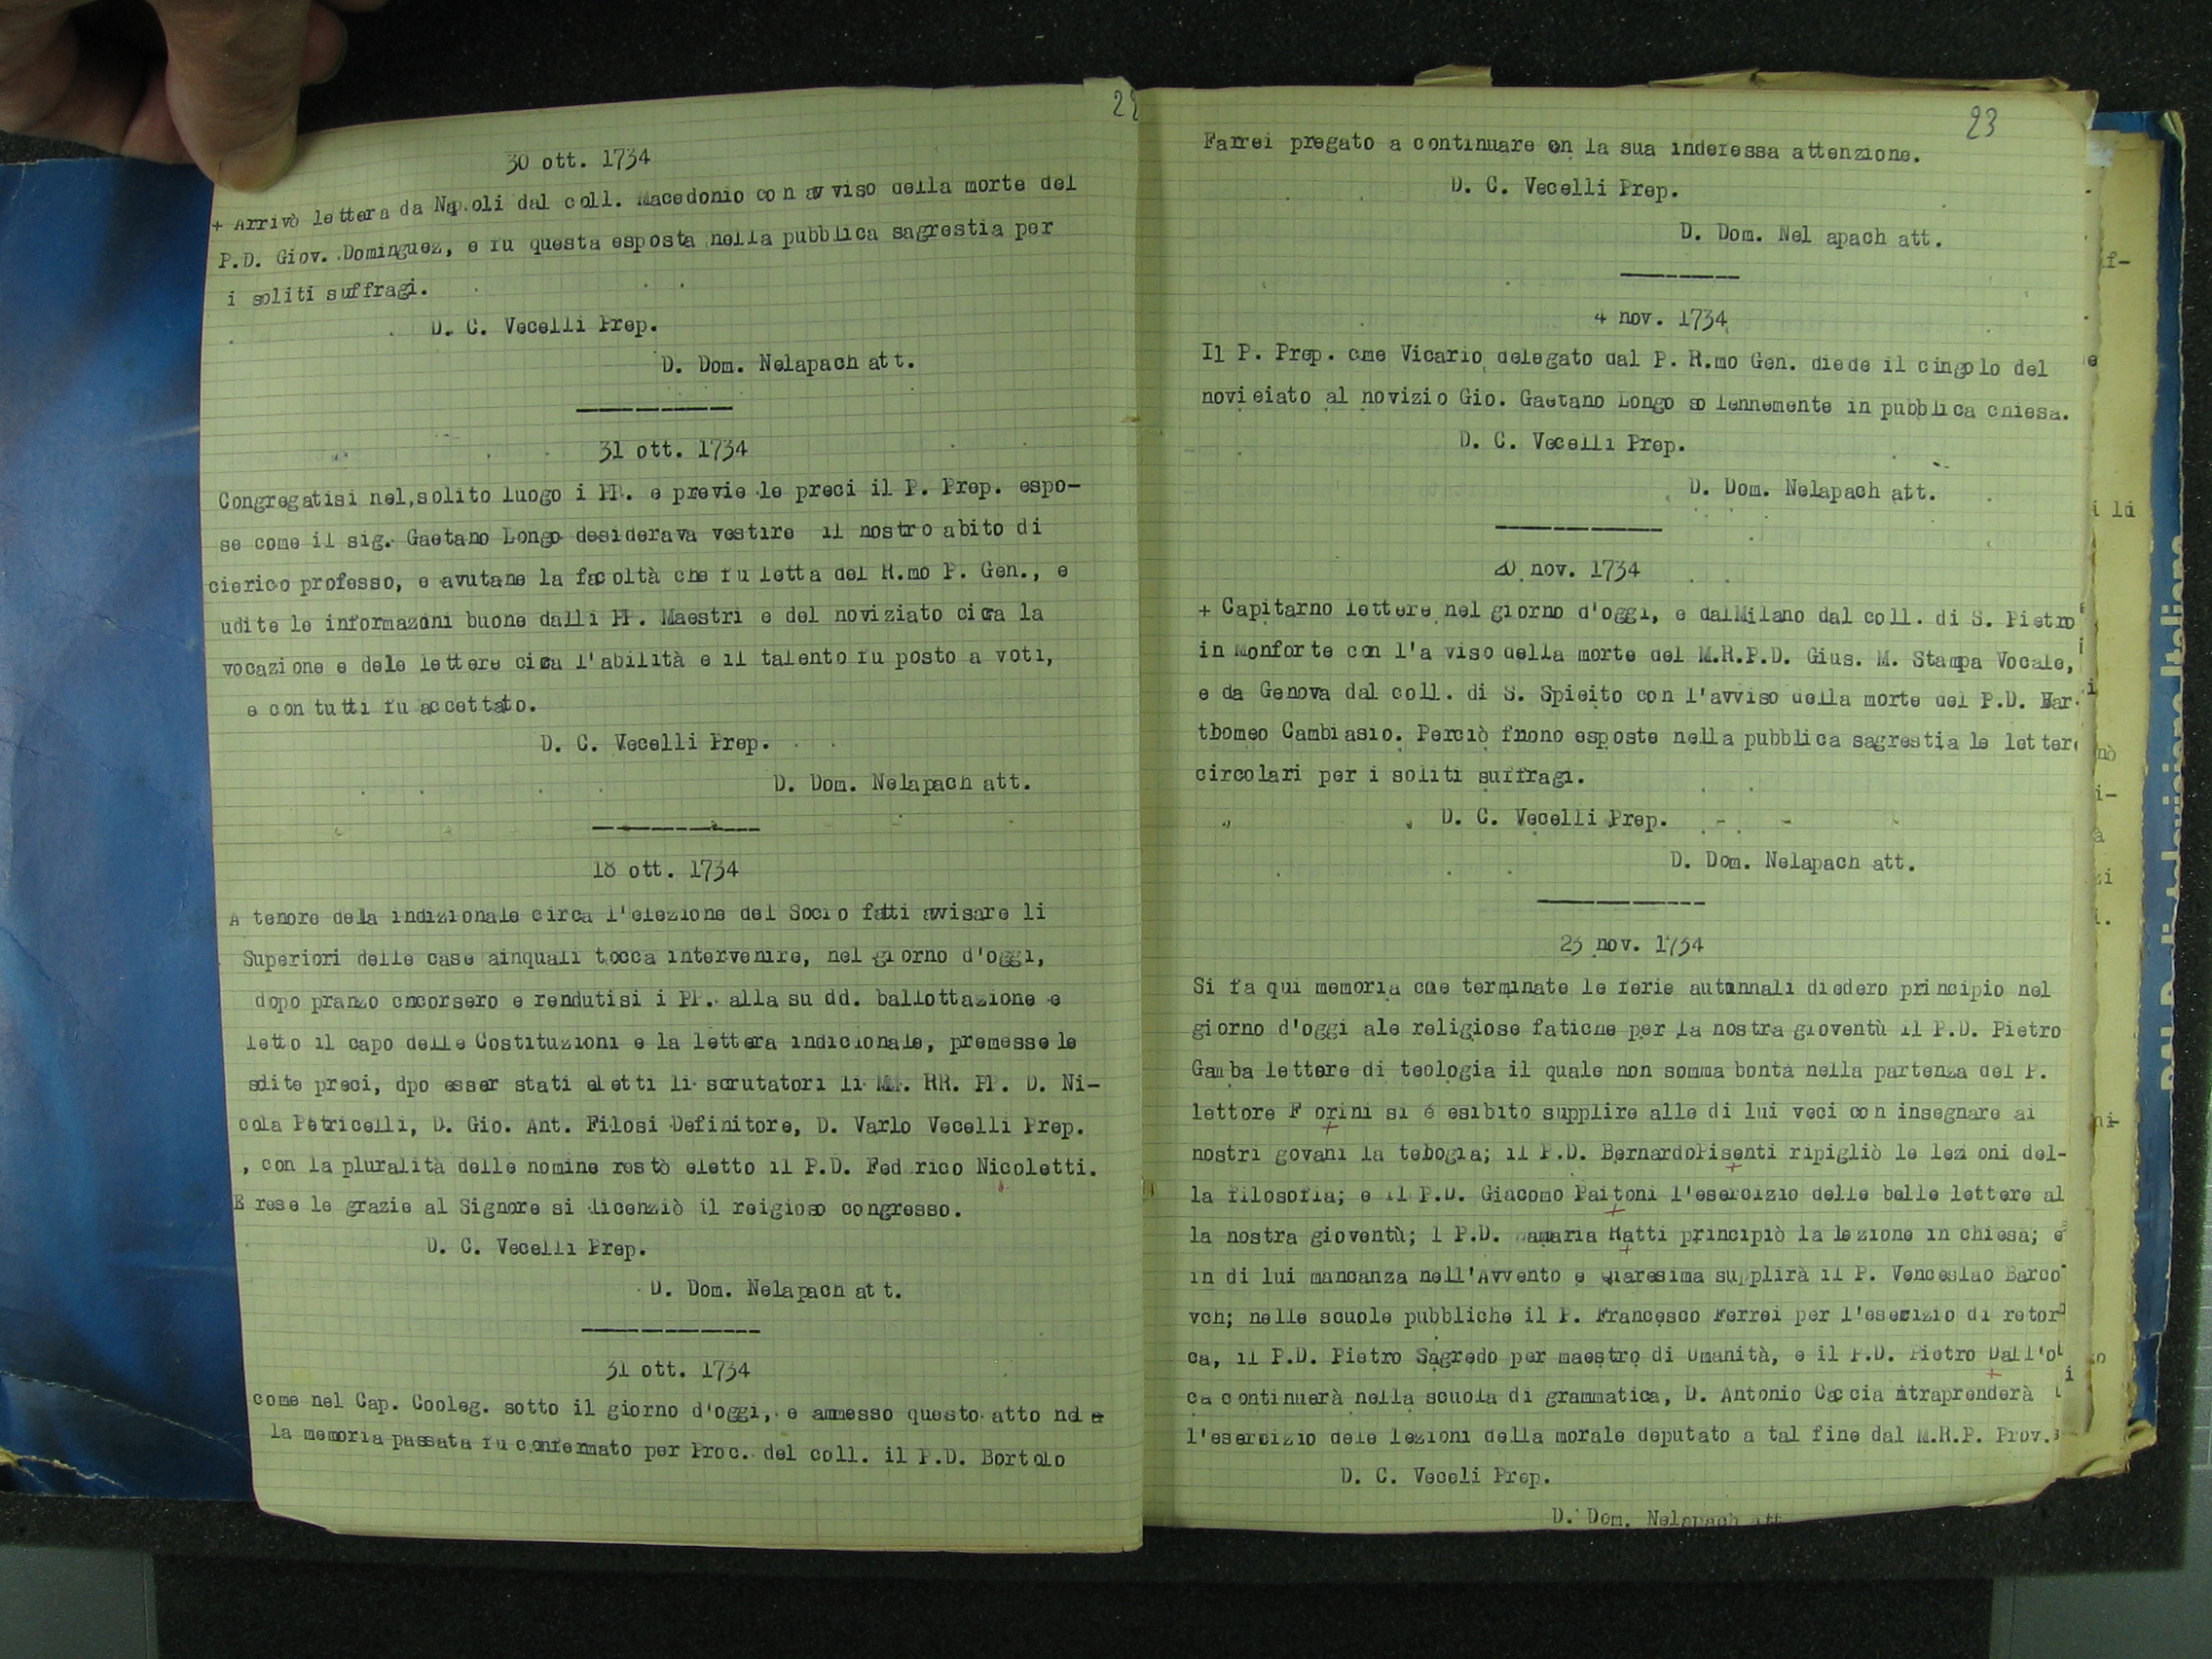 22
30 ott. 1734
+ Arrivò lettera da Napoli dal coll. Macedonio con avviso della morte del
P.D. Giov. Dominguez, e fu questa esposta nella pubblica sagrestia per
i soliti suffragi.
D. C. Vecelli Prep.
D. Dom. Nelapach att.
31 ott. 1734
Congregatisi nel,solito luogo i PP. e previe le preci il P. Prep. espo-
se come il sig. Gaetano Longo desiderava vestire il nostro abito di
cierico professo, e avutane la facoltà che fu letta del R.mo P. Gen., e
udite le informazioni buone dalli PP. Maestri e del noviziato cirra la
vocazione e dele lettere cirea l'abilità e il talento fu posto a voti,
e con tutti fu accettato.
D. C. Vecelli Prep.
D. Dom. Nelapach att.
18 ott. 1734
A tenore dela indizionale circa l'elezione del Socio fatti avvisare li
Superiori delle case ainquali tocca intervenire, nel giorno d'oggi,
dopo pranzo cncorsero e rendutisi i PP. alla su dd. ballottazione e
letto il capo delle Costituzioni e la lettera indicionale, premesse le
sdite preci, dpo esser stati eletti li scrutatori li MM. RR. PP. D. Ni-
cola Petricelli, D. Gio. Ant. Filosi Definitore, D. Varlo Vecelli Prep.
, con la pluralità delle nomine restò eletto il P.D. Fed rico Nicoletti.
E rese le grazie al Signore si licenziò il reigioso congresso.
D. C. Vecelli Prep.
D. Dom. Nelapach att.
31 ott. 1734
come nel Cap. Cooleg. sotto il giorno d'oggi, e ammesso questo atto nel
la memoria passata fu confermato per Proc. del coll. il P.D. Bortolo
23
Farrei pregato a continuare on la sua indefessa attenzione.
D. C. Vecelli Prep.
D. Dom. Nel apach att.
4 nov. 1734
Il P. Prep. ome Vicario delegato dal P. R.mo Gen. diede il cingolo del
novieiato al novizio Gio. Gaetano Longo solennemente in pubblica chiesa.
D. C. Vecelli Prep.
D. Dom. Nelapach att.
20 nov. 1734
+ Capitarno lettere nel giorno d'oggi, e dalMilano dal coll. di S. Pietro
in Monforte con l'a viso della morte del M.R.P.D. Gius. M. Stampa Vocale,
e da Genova dal coll. di S. Spieito con l'avviso della morte del P.D. Bar-
tbomeo Cambiasio. Perciò fnono esposte nella pubblica sagrestia le letter
circolari per i soliti suffragi.
D. C. Vecelli Prep.
D. Dom. Nelapach att.
23 nov. 1734
Si fa qui memoria che terminate le ferie autunnali diedero principio nel
giorno d'oggi ale religiose fatiche per la nostra gioventù il P.D. Pietro
Gamba lettore di teologia il quale non somma bontà nella partenza del P.
lettore F orini si é esibito supplire alle di lui veci con insegnare ai
nostri govani la tebogia; il P.D. BernardoPisenti ripigliò le lezioni del-
la filosofia; e il P.D. Giacomo Paitoni l'esercizio delle belle lettere al
la nostra gioventù; l P.D. Hatti principiò la lezione in chiesa; e
in di lui mancanza nell'Avvento e Quaresima supplirà il P. Venceslao Barco
vch; nelle scuole pubbliche il P. Francesco Ferrei per l'esercizio di retor
ca, il P.D. Pietro Sagredo per maestro di Umanità, e il P.D. Pietro Dall'o
ca continuerà nella scuola di grammatica, D. Antonio Caccia intraprenderà
l'esercizio dele lezioni della morale deputato a tal fine dal M.R.P. Prov.
D. C. Veceli Prep.
D. Dom. Nelapach att